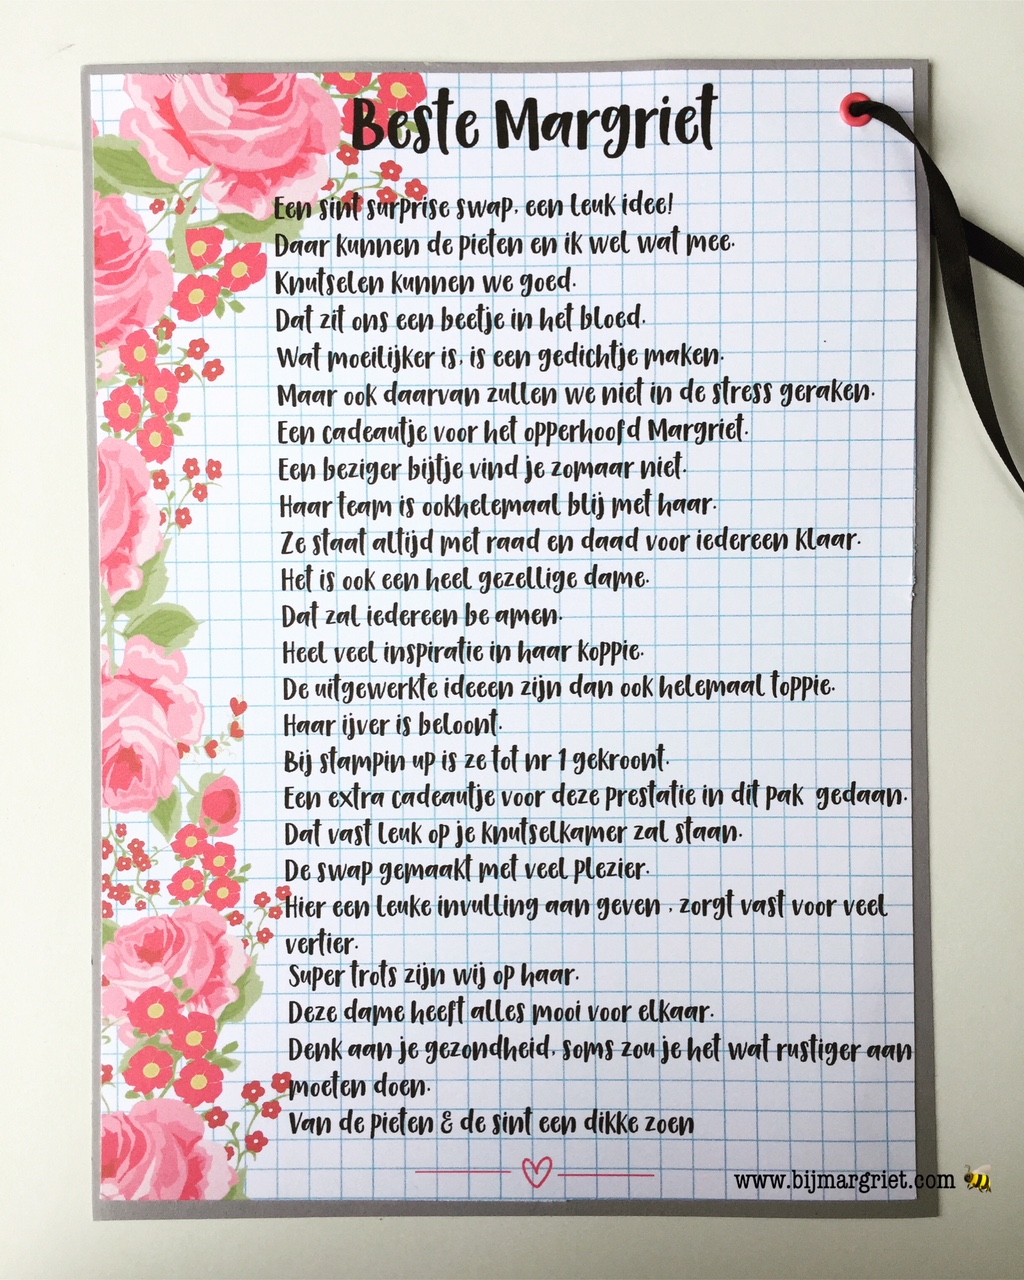 Beste Margriet
Een sint surprise swap, een leuk idee!
Daar kunnen de pieten en ik wel wat mee.
Knutselen kunnen we goed.
Dat zit ons een beetje in het bloed.
Wat moeilijker is, is een gedichtje maken.
Maar ook daarvan zullen we niet in de stress geraken.
Een cadeautje voor het opperhoofd Margriet.
Een beziger bijtje vind je zomaar niet.
Haar team is ookhelemaal blij met haar.
Ze staat altijd met raad en daad voor iedereen klaar.
Het is ook een heel gezellige dame.
Dat zal iedereen be amen.
Heel veel inspiratie in haar koppie.
De uitgewerkte ideeen zijn dan ook helemaal toppie.
Haar ijver is beloont.
Bij stampin up is ze tot nr 1 gekroont.
Een extra cadeautje voor deze prestatie in dit pak gedaan.
Dat vast leuk op je knutselkamer zal staan.
De swap gemaakt met veel plezier.
Hier een leuke invulling aan geven , zorgt vast voor veel
vertier.
Super trots zijn wij op haar.
Deze dame heeft alles mooi voor elkaar.
Denk aan je gezondheid, soms zou je het wat rustiger aan
moeten doen.
Van de pieten & de sint een dikke zoen
www.bijmargriet.com